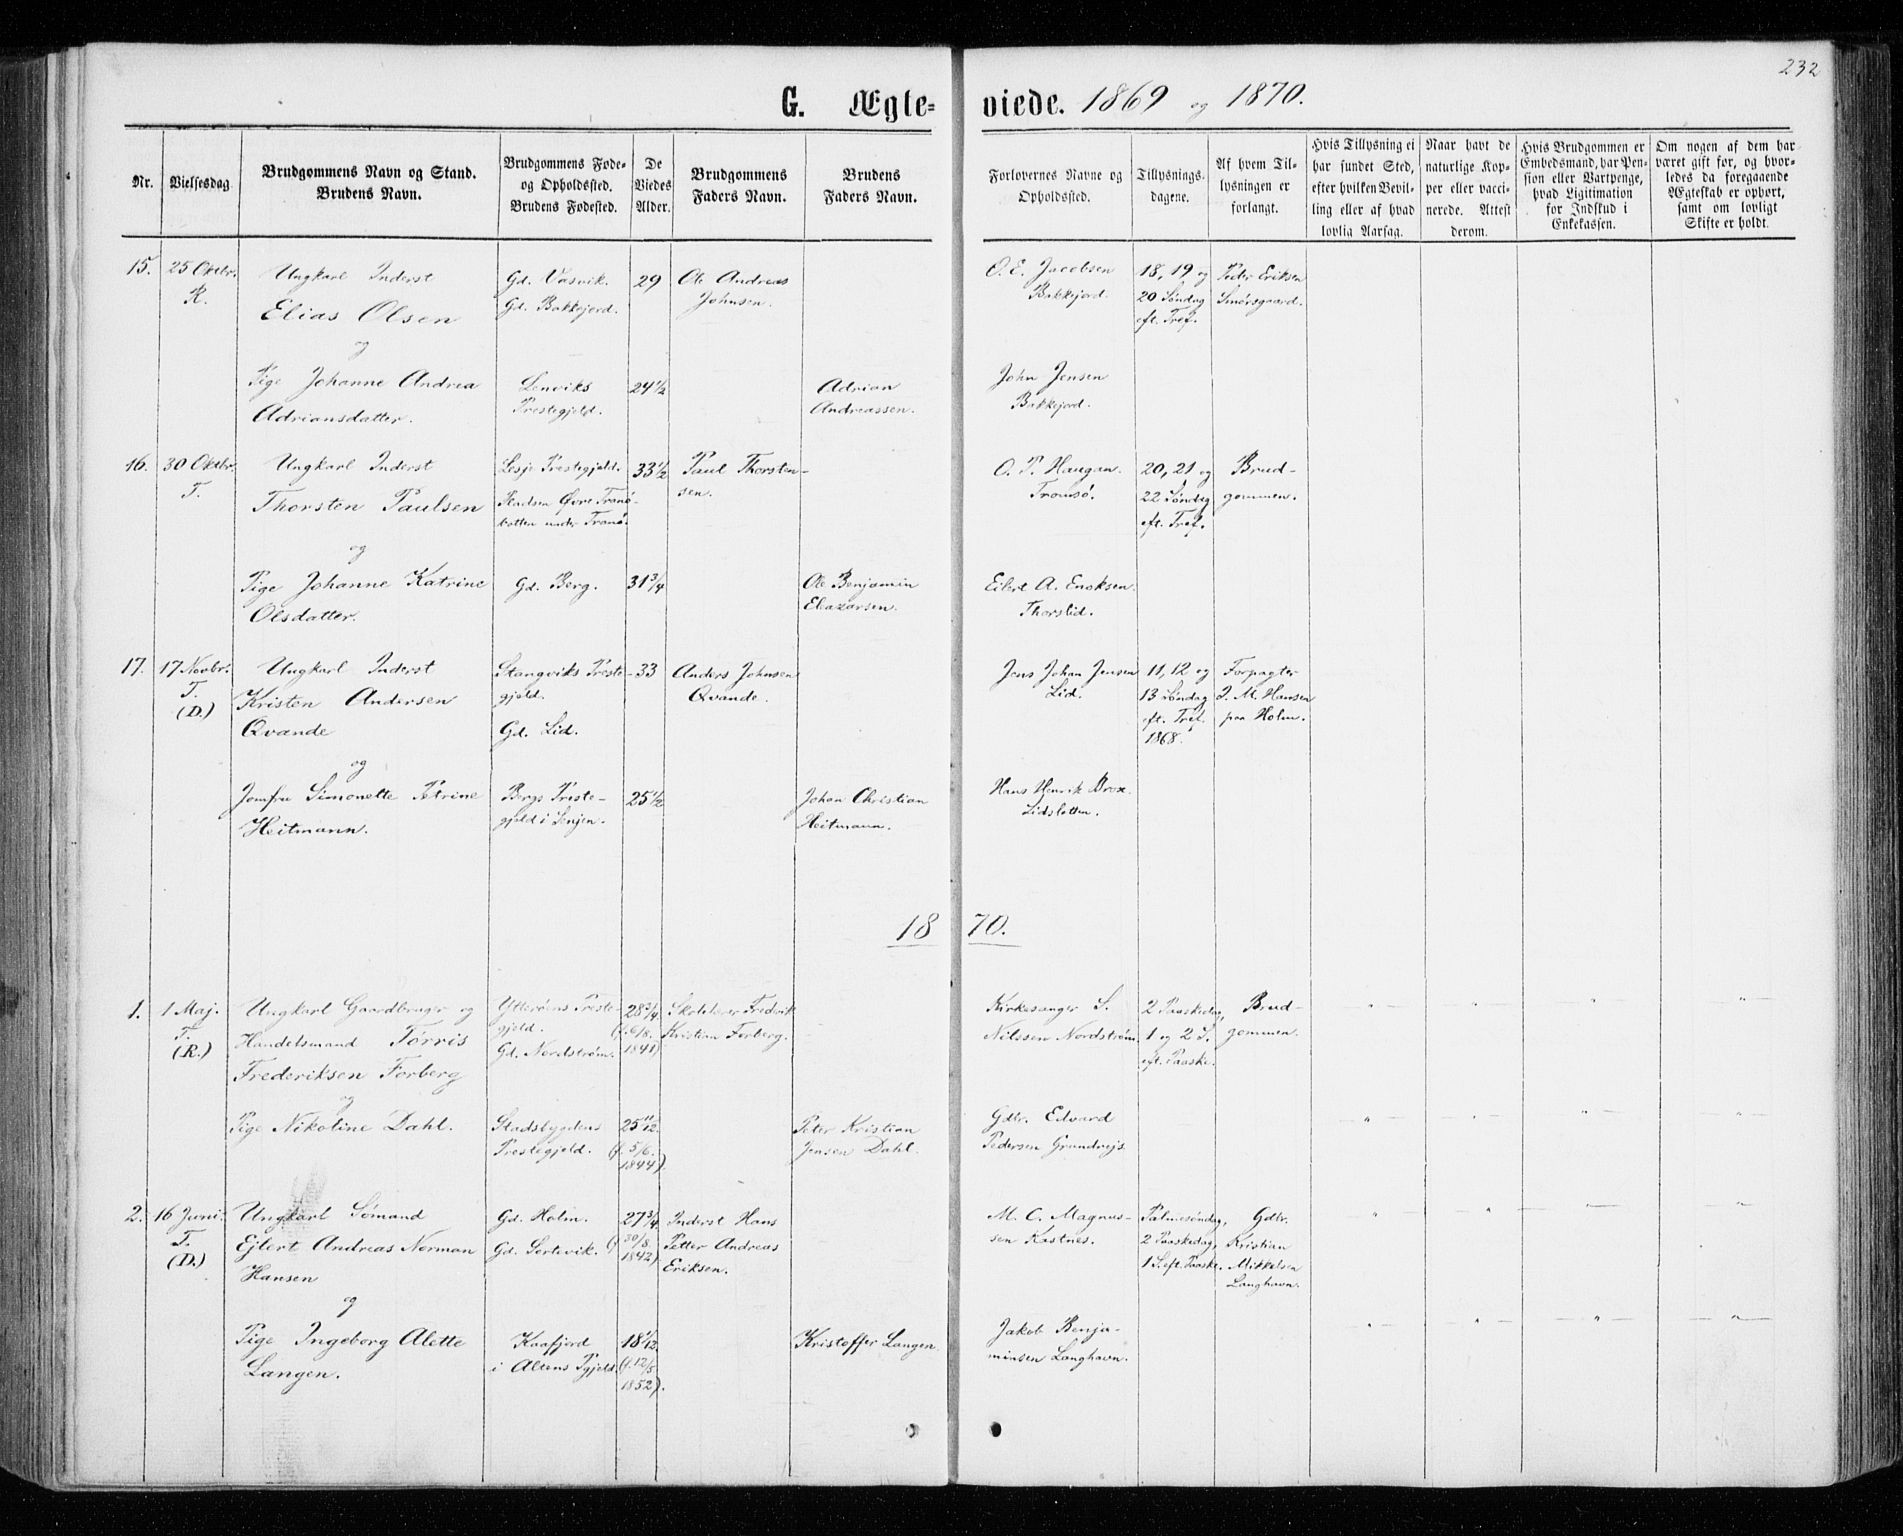 232
G. Ægte= viede. 1869 og 1870.
Nr.
Vielsesdag.
Brudgommens Navn og Stand.
Brudens Navn.
Brudgommens Føde-
og Opholdssted.
Brudens Fødested.
De
Viedes
Alder.
Brudgommens
Faders Navn.
Brudens
Faders Navn.
Forlovernes Navne og
Opholdssted.
Tillysnings-
dagene.
Af hvem Til-
lysningen er
forlangt.
Hvis Tillysning ei
har fundet Sted,
efter hvilken Bevil-
ling eller af hvad
lovlig Aarsag.
Naar havt de
naturlige Kop-
per eller vacci-
nerede. Attest
derom.
Hvis Brudgommen er
Embedsmand, har Pen-
sion eller Vartpenge,
hvad Ligitimation
for Indskud i
Enkekassen.
Om nogen af dem har
været gift før, og hvor-
ledes da foregaaende
Ægteskab er ophørt,
samt om lovligt
Skifte er holdt.
15.
25 Oktbr.
R.
Ungkarl Inderst
Elias Olsen
og
Pige Johanne Andrea
Adriansdatter.
Gd. Vasvik.
Gd. Bakkejord.
Lenviks
Prestegjeld.
29
24 1/2
Ole Andreas
Johnsen.
Adrian
Andreassen.
O. E. Jacobsen
Bakkejord.
John Jensen
Bakkejord.
18, 19 og
20 Søndag
eft. Tref.
Peder Eriksen
Smørsgaard.
16.
30 Oktbr.
T.
Ungkarl Inderst
Thorsten Paulsen
og
Pige Johanne Katrine
Olsdatter.
Lesje Prestegjeld.
Pladsen Øvre Tranø-
botten under Tranø.
Gd. Berg.
33 1/2
31 3/4
Paul Thorsten-
sen.
Ole Benjamin
Eleazarsen.
O. P. Haugan.
Tromsø.
Eilert A. Enoksen
Thorslid.
20, 21 og
22 Søndag
eft. Tref.
Brud-
gommen.
17.
17 Novbr.
T.
(D.)
Ungkarl Inderst
Kristen Andersen
Qvande
og
Jomfru Simonette Petrine
Heitmann.
Stangviks Preste-
gjeld.
Gd. Lid.
Bergs Preste-
gjeld i Senjen.
33
25 1/2
Anders Johnsen
Qvande.
Johan Christian
Heitmann.
Jens Johan Jensen
Lid.
Hans Henrik Brox.
Lidsletten.
11, 12 og
13 Søndag
eft. Tref.
1868.
Forpagter
J. M. Hansen
paa Holm.
1870.
1.
1 Maj.
T.
(R.)
Ungkarl Gaardbruger og
Handelsmand Tørris
Frederiksen Forberg
og
Pige Nikoline Dahl.
Ytterøens Preste-
gjeld.
Gd. Nordstrøm.
Stadsbygdens
Prestegjeld.
28 3/4
(f. 6/8.
1841)
25 11/12.
(f. 5/6.
1844).
Skolelærer Frederik
Kristian Forberg.
Peter Kristian
Jensen Dahl.
Kirkesanger S.
Nilssen Nordstrøm.
Gdbr. Edvard
Pedersen Grundvejs
2 Paaskedag,
1 og 2 S.
eft. Paaske.
Brud-
gommen.
2.
16 Juni.
T.
(D.)
Ungkarl Sømand
Ejlert Andreas Norman
Hansen
og
Pige Ingeborg Alette
Langen.
Gd. Holm.
Gd. Sortevik.
Kaafjord
i Altens Pgjeld.
27 3/4
(f. 30/8.
1842)
18 1/12.
(f. 12/5
1852).
Inderst Hans
Petter Andreas
Eriksen.
Kristoffer Langen.
M. C. Magnus-
sen Kastnes.
Jakob Benja-
minsen Langhavn.
Palmesøndag,
2 Paaskedag,
1 S. eft. Paaske.
Gdbr.
Kristian
Mikkelsen
Langhavn.